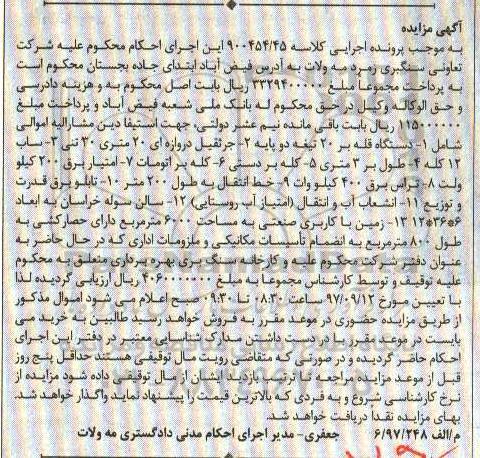 آگهی مزایده
به موجب پرونده اجرایی کلاسه ۹۰۰۴۵۴/۴۵ این اجرای احکام محکوم علیه شرکت
تعاونی سنگبری زمرد مه ولات به آدرس فیض آباد ابتدای جاده بجستان محکوم است
به پرداخت مجموعاً مبلغ ۳۳۲۹۴۰۰۰۰۰ ریال بابت اصل محکوم به و هزینه دادرسی
و حق الوکاله وکیل در حق محکوم له بانک ملی شعبه فیض آباد و پرداخت مبلغ
۱۱۵۰۰۰۰۰۰ ریال بابت باقی مانده نیم عشر دولتی، جهت استیفا دین مشارالیه اموالی
شامل ۱- دستگاه قله بر ۲۰ تیغه دو پایه ۲- جرثقیل دروازه ای ۲۰ متری ۲۰ تنی ۳- ساب
۱۲ کله ۴- طول بر ۳ متری ۵- کله بر دستی ۶- کله بر اتومات ۷- امتیاز برق ۲۰۰ کیلو
ولت ۸- تراس برق ۴۰۰ کیلو وات ۹- خط انتقال به طول ۲۰۰ متر ۱۰- تابلو برق قدرت
و توزیع ۱۱- انشعاب آب و انتقال (امتیاز آب روستایی) ۱۲- سالن سوله خراسان به ابعاد
۶*۳۶*۱۲ ۱۳- زمین با کاربری صنعتی به مساحت ۶۰۰۰ مترمربع دارای حصارکشی به
طول ۸۰۰ مترمربع به انضمام تأسیسات مکانیکی و ملزومات اداری که در حال حاضر به
عنوان دفتر شرکت محکوم علیه و کارخانه سنگ بری بهره برداری متعلق به محکوم
علیه توقیف و توسط کارشناس مجموعا به مبلغ ۴۰۶۰۰۰۰۰۰۰ ریال ارزیابی گردیده لذا
با تعیین مورخ ۹۷/۰۹/۱۲ ساعت ۰۸:۳۰ تا ۰۹:۳۰ صبح اعلام می شود اموال مذکور
از طریق مزایده حضوری در موعد مقرر به فروش خواهد رسید طالبین به خرید می
بایست در موعد مقرر با در دست داشتن مدارک شناسایی معتبر در دفتر این اجرای
احکام حاضر گردیده و در صورتی که متقاضی رویت مال توقیفی هستند حداقل پنج روز
قبل از موعد مزایده مراجعه تا ترتیب بازدید ایشان از مال توقیفی داده شود مزایده از
نرخ کارشناسی شروع و به فردی که بالاترین قیمت را پیشنهاد نماید واگذار خواهد شد.
بهای مزایده نقدا دریافت خواهد شد.
م/الف ۶/۹۷/۲۴۸ جعفری- مدیر اجرای احکام مدنی دادگستری مه ولات